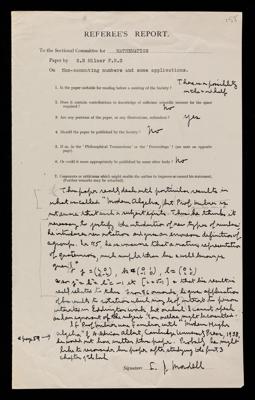 155
REFEREE'S REPORT.
To the Sectional Committee for MATHEMATICS
Paper by E A Milner F.R.S
On Non-commuting numbers and some applications.
1. Is the paper suitable for reading before a meeting of the Society?
There is a possibility
2. Does it contain contributions to knowledge of sufficient scientific interest for the space required?
No
3. Are any portions of the paper, or any illustrations, redundant?
yes
4. Should the paper be published by the Society?
No
5. If so, in the 'Philosophical Transactions' or the 'Proceedings'? (see note on opposite page).
6. Or could it more appropriately be published by some other body?
No
7. Comments or criticisms which might enable the author to improve or correct his statement. (Further remarks may be attached).
This paper really deals with particular results in
what is called "Modern Algebra," but Prof. Milner is
not aware that such a subject exists. Thus he thinks it
necessary to justify the introduction of new types of numbers;
he introduces new notation and gives an erroneous definition of
a group. In §5, he is unaware that a matrix representation
of quaternions, much simpler than his is well known is
given by
related to
his results to rotation which may be of interest to persons
interested in Eddington's work but which I cannot
as I am ignorant of the subject.
If Prof. Milner were familiar with "Modern Higher
Algebra" by A. Adrian Albert, Cambridge University Press, 1938,
he would not have written this paper. Probably he might
like to reconsider his paper after studying the first 3
chapters of this book
Signature L. J. Mordell